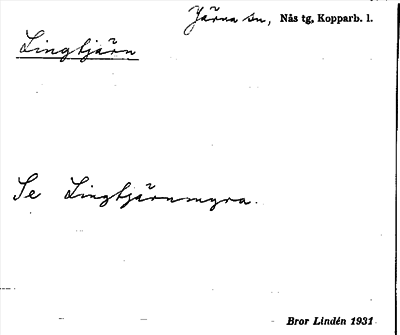 Järna sn, Nås tg, Kopparb. l.
Lingtjärn
Se Lingtjärnmyra.
Bror Lindén 1931